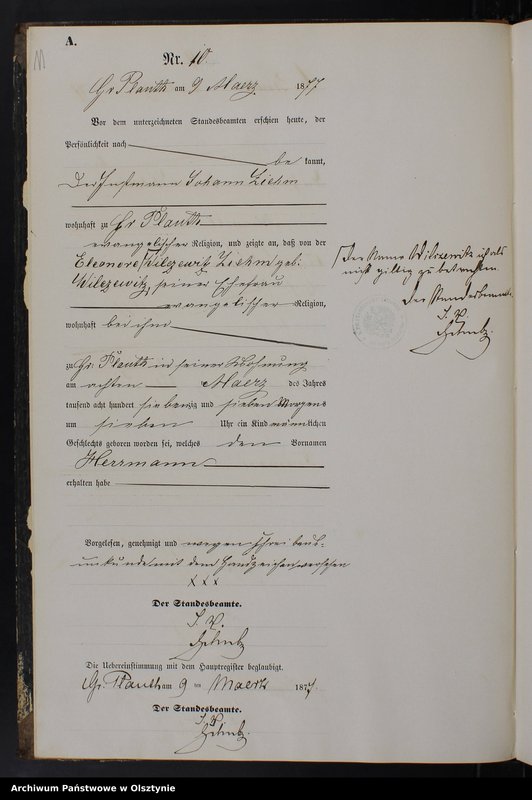 A.
Nr. 10.
Gr Plauth am 9 Maerz 1877
Vor dem unterzeichneten Standesbeamten erschien heute, der
Persönlichkeit nach
be kannt,
Der Instmann Johann Ziehm
wohnhaft zu Gr Plauth
evangelischer Religion, und zeigte an, daß von der
Eleonore Wilczewitz Ziehm geb:
Wilczewitz, seiner Ehefrau
evangelischer Religion,
wohnhaft bei ihm
zu Gr. Plauth in seiner Wohnung
am achten Maerz des Jahres
tausend acht hundert siebenzig und sieben Morgens
um sieben Uhr ein Kind männlichen
Geschlechts geboren worden sei, welches den Vornamen
Herrmann
erhalten habe
Vorgelesen, genehmigt und wegen Schreibens-
unkunde mit dem Handzeichen versehen
X X X
Der Standesbeamte.
I. V.
Die Uebereinstimmung mit dem Hauptregister beglaubigt.
Gr. Plauth am 9 ten Maerz 1877.
Der Standesbeamte.
I. V.
Der Name Wilczewitz ist als
nicht giltig zu betrachten.
Der Standesbeamte
I. V.
Archiwum Państwowe w Olsztynie